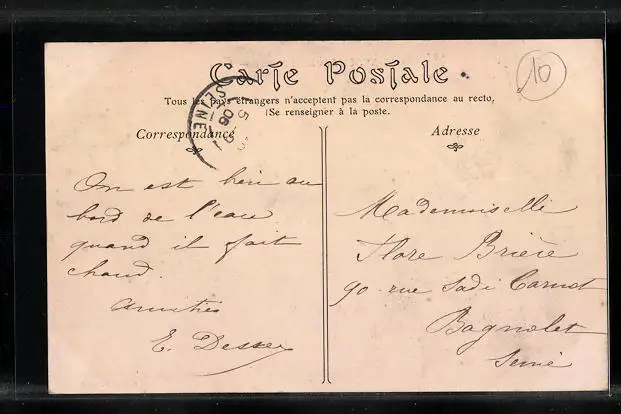 Carte Postale
10
Tous les pays étrangers n'acceptent pas la correspondance au recto,
(Se renseigner à la poste.
Correspondance
Adresse
SEINE
On est bien au
bord de l'eau
quand il fait
chaud.
amitiés
E. Dessey
Mademoiselle
Flore Brière
90 rue Sadi Carnot
Bagnolet
Seine